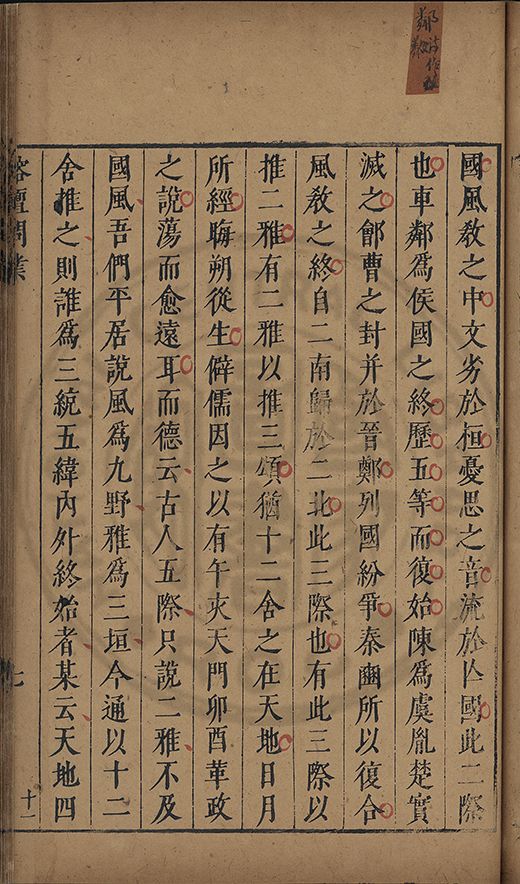 國風教之中文劣於桓憂思之音淹於亾國此二際
也車鄰爲侯國之終歷五等而復始陳爲虞胤楚實
滅之鄶曹之封并於晉鄭列國紛爭秦豳所以復合
風教之終自二南歸於二北此三際也有此三際以
推二雅有二雅以推三頌猶十二舍之在天地日月
所經晦朔從生僻儒因之以有午亥天門卯酉革政
之說蕩而愈遠耳而德云古人五際只說二雅不及
國風吾們平居說風爲九野雅爲三垣今通以十二
舍推之則誰爲三統五緯內外終始者某云天地四
榕壇問業
七
十一
鄰
作